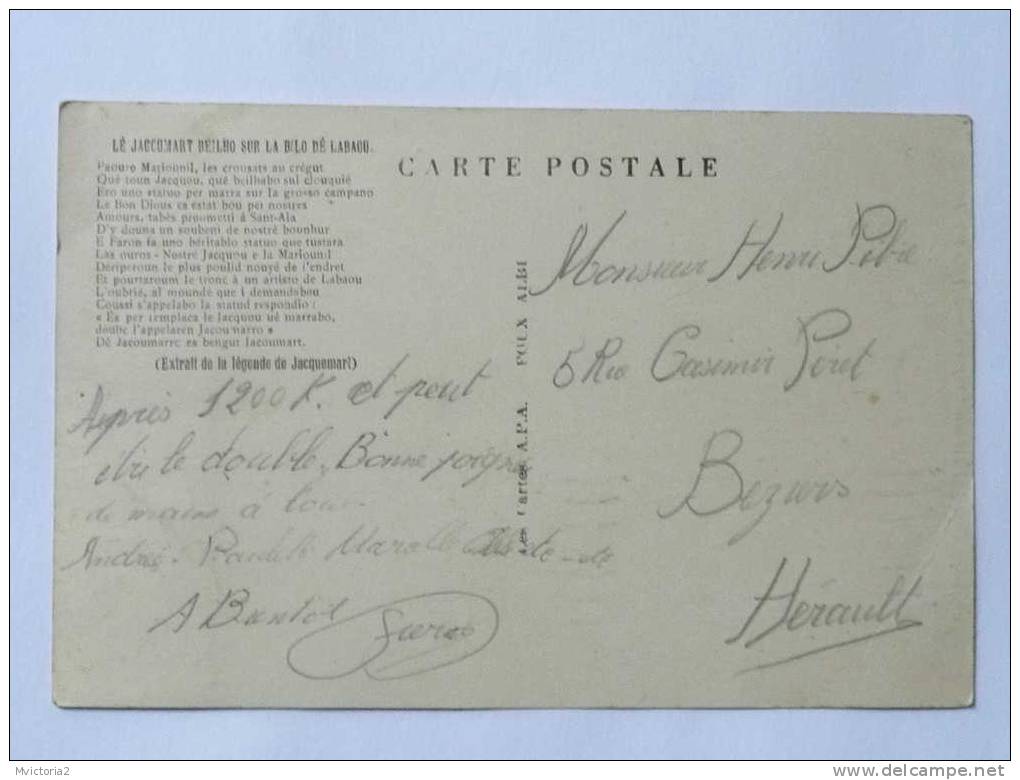 LÉ JACCOMART BEILHO SUR LA BILO DÉ LABAOU.
Paouro Mariounil, les crousats au crégut
Qué toun Jacquou, qué beilhabo sul clouquié
Ero uno statuo per marra sur la grosso campano
Le Bon Dious es estat bou per nostres
Amours, tabés proumetti à Sant-Ala
D'y douna un soubeni de nostré bounhur
E Faron fa uno béritablo statuo que tustara
Las ouros - Nostré Jacquou e la Mariounil
Dériperoun le plus poulid nouyé de l'endret
Et pourtaroum le tronc à un artisto de Labaou
L'oubrié, al moundé que i demandabou
Coussi s'appelabo la statud respondio :
« Es per remplaca le Jacquou ué marrabo,
doube l'appelaren Jacoumarro »
Dé Jacoumarre es bengut Jacoumart.
(Extrait de la légende de Jacquemart)
CARTE POSTALE
Les Cartes A.P.A. POUX ALBI
Après 1200 K. et peut
être le double. Bonne poignée
de mains à tous
André - Marcelle
A Bientôt
Monsieur Henri Pibre
5 Rue Casimir Péret
Beziers
Hérault
Mvictoria2
delcampe.net